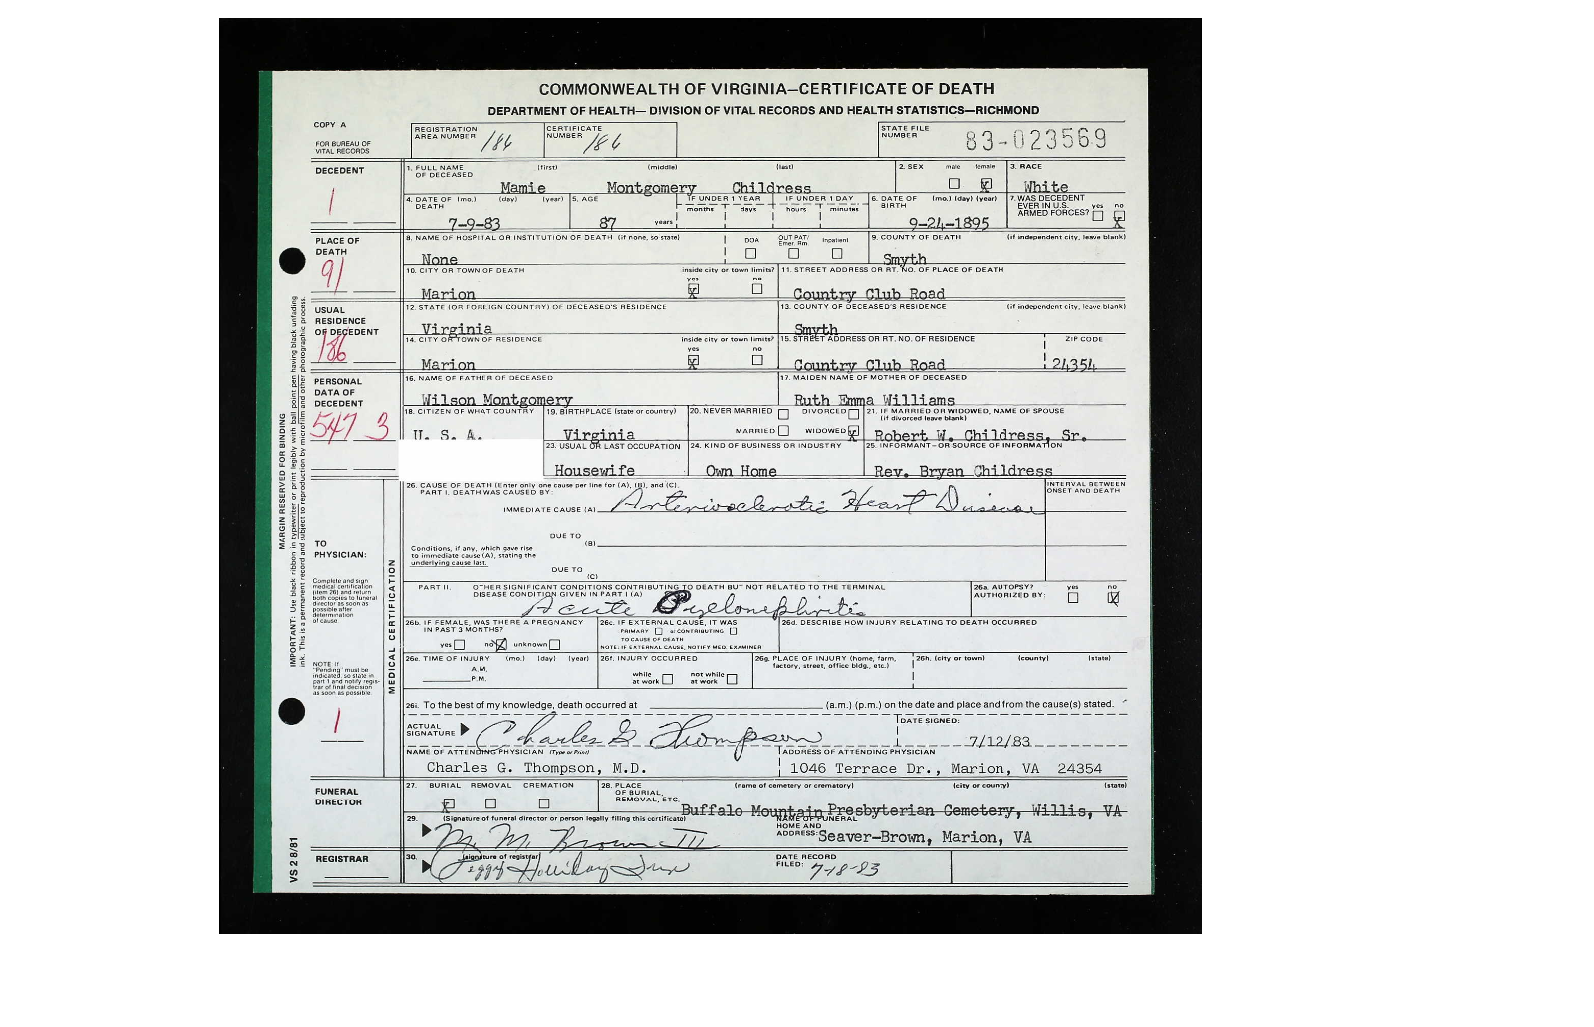 COMMONWEALTH OF VIRGINIA—CERTIFICATE OF DEATH
DEPARTMENT OF HEALTH— DIVISION OF VITAL RECORDS AND HEALTH STATISTICS—RICHMOND
COPY A
FOR BUREAU OF
VITAL RECORDS
REGISTRATION AREA NUMBER 186
CERTIFICATE NUMBER 186
STATE FILE NUMBER 83-023569
DECEDENT
1
1. FULL NAME OF DECEASED (first) (middle) (last)
Mamie Montgomery Childress
2. SEX male female X
3. RACE
White
4. DATE OF DEATH (mo.) (day) (year)
7-9-83
5. AGE
87 years
IF UNDER 1 YEAR months days
IF UNDER 1 DAY hours minutes
6. DATE OF BIRTH (mo.) (day) (year)
9-24-1895
7. WAS DECEDENT EVER IN U.S. ARMED FORCES? yes no X
PLACE OF DEATH
91
8. NAME OF HOSPITAL OR INSTITUTION OF DEATH (if none, so state)
None
DOA OUT PAT/ Emer. Rm. Inpatient
9. COUNTY OF DEATH (if independent city, leave blank)
Smyth
10. CITY OR TOWN OF DEATH inside city or town limits? yes X no
Marion
11. STREET ADDRESS OR RT. NO. OF PLACE OF DEATH
Country Club Road
USUAL RESIDENCE OF DECEDENT
186
12. STATE (OR FOREIGN COUNTRY) OF DECEASED'S RESIDENCE
Virginia
13. COUNTY OF DECEASED'S RESIDENCE (if independent city, leave blank)
Smyth
14. CITY OR TOWN OF RESIDENCE inside city or town limits? yes X no
Marion
15. STREET ADDRESS OR RT. NO. OF RESIDENCE ZIP CODE
Country Club Road 24354
PERSONAL DATA OF DECEDENT
547 3
16. NAME OF FATHER OF DECEASED
Wilson Montgomery
17. MAIDEN NAME OF MOTHER OF DECEASED
Ruth Emma Williams
18. CITIZEN OF WHAT COUNTRY
U. S. A.
19. BIRTHPLACE (state or country)
Virginia
20. NEVER MARRIED DIVORCED
MARRIED WIDOWED X
21. IF MARRIED OR WIDOWED, NAME OF SPOUSE (if divorced leave blank)
Robert W. Childress, Sr.
23. USUAL OR LAST OCCUPATION
Housewife
24. KIND OF BUSINESS OR INDUSTRY
Own Home
25. INFORMANT—OR SOURCE OF INFORMATION
Rev. Bryan Childress
MARGIN RESERVED FOR BINDING
IMPORTANT: Use black ribbon in typewriter or print legibly with ball point pen having black unfading
ink. This is a permanent record and subject to reproduction by microfilm and other photographic process.
TO PHYSICIAN:
Complete and sign
medical certification
(item 26) and return
both copies to funeral
director as soon as
possible after
determination
of cause.
NOTE: If
"Pending" must be
indicated, so state in
part 1 and notify regis-
trar of final decision
as soon as possible.
1
MEDICAL CERTIFICATION
26. CAUSE OF DEATH (Enter only one cause per line for (A), (B), and (C).
PART I. DEATH WAS CAUSED BY:
INTERVAL BETWEEN ONSET AND DEATH
IMMEDIATE CAUSE (A) Arteriosclerotic Heart Disease
DUE TO (B)
Conditions, if any, which gave rise
to immediate cause (A), stating the
underlying cause last.
DUE TO (C)
PART II. OTHER SIGNIFICANT CONDITIONS CONTRIBUTING TO DEATH BUT NOT RELATED TO THE TERMINAL
DISEASE CONDITION GIVEN IN PART I (A)
Acute Pyelonephritis
26a. AUTOPSY? AUTHORIZED BY: yes no X
26b. IF FEMALE, WAS THERE A PREGNANCY IN PAST 3 MONTHS?
yes no X unknown
26c. IF EXTERNAL CAUSE, IT WAS
PRIMARY or CONTRIBUTING
TO CAUSE OF DEATH
NOTE: IF EXTERNAL CAUSE, NOTIFY MED. EXAMINER
26d. DESCRIBE HOW INJURY RELATING TO DEATH OCCURRED
26e. TIME OF INJURY (mo.) (day) (year)
A.M.
P.M.
26f. INJURY OCCURRED
while at work not while at work
26g. PLACE OF INJURY (home, farm, factory, street, office bldg., etc.)
26h. (city or town) (county) (state)
26i. To the best of my knowledge, death occurred at (a.m.) (p.m.) on the date and place and from the cause(s) stated.
ACTUAL SIGNATURE Charles G Thompson
DATE SIGNED:
7/12/83
NAME OF ATTENDING PHYSICIAN (Type or Print)
Charles G. Thompson, M.D.
ADDRESS OF ATTENDING PHYSICIAN
1046 Terrace Dr., Marion, VA 24354
FUNERAL DIRECTOR
27. BURIAL REMOVAL CREMATION
X
28. PLACE OF BURIAL, REMOVAL, ETC. (name of cemetery or crematory) (city or county) (state)
Buffalo Mountain Presbyterian Cemetery, Willis, VA
29. (Signature of funeral director or person legally filing this certificate)
M. M. Brown III
NAME OF FUNERAL HOME AND ADDRESS: Seaver-Brown, Marion, VA
VS 2 8/81
REGISTRAR
30. (signature of registrar)
Peggy Holliday
DATE RECORD FILED: 7-18-83